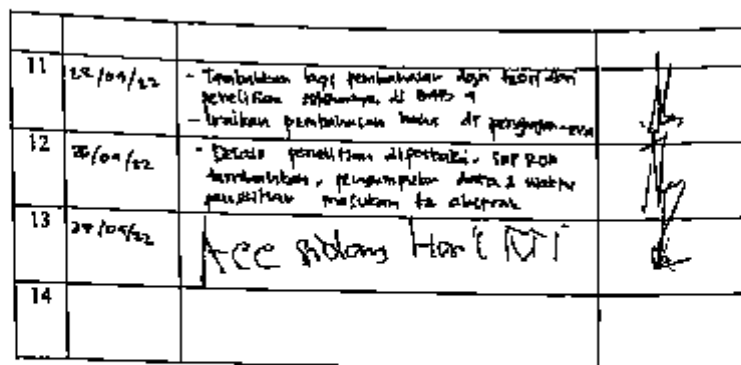 11 22/09/22 - Tambahkan lagi pembahasan dari teori dan
penelitian sebelumnya di BAB 4
- Uraikan pembahasan harus di
12 26/09/22 - Desain penelitian diperbaiki, SOP ROM
tambahkan, pengumpulan data & waktu
penelitian masukan ke abstrak
13 27/09/22 Acc Sidang Hasil
14